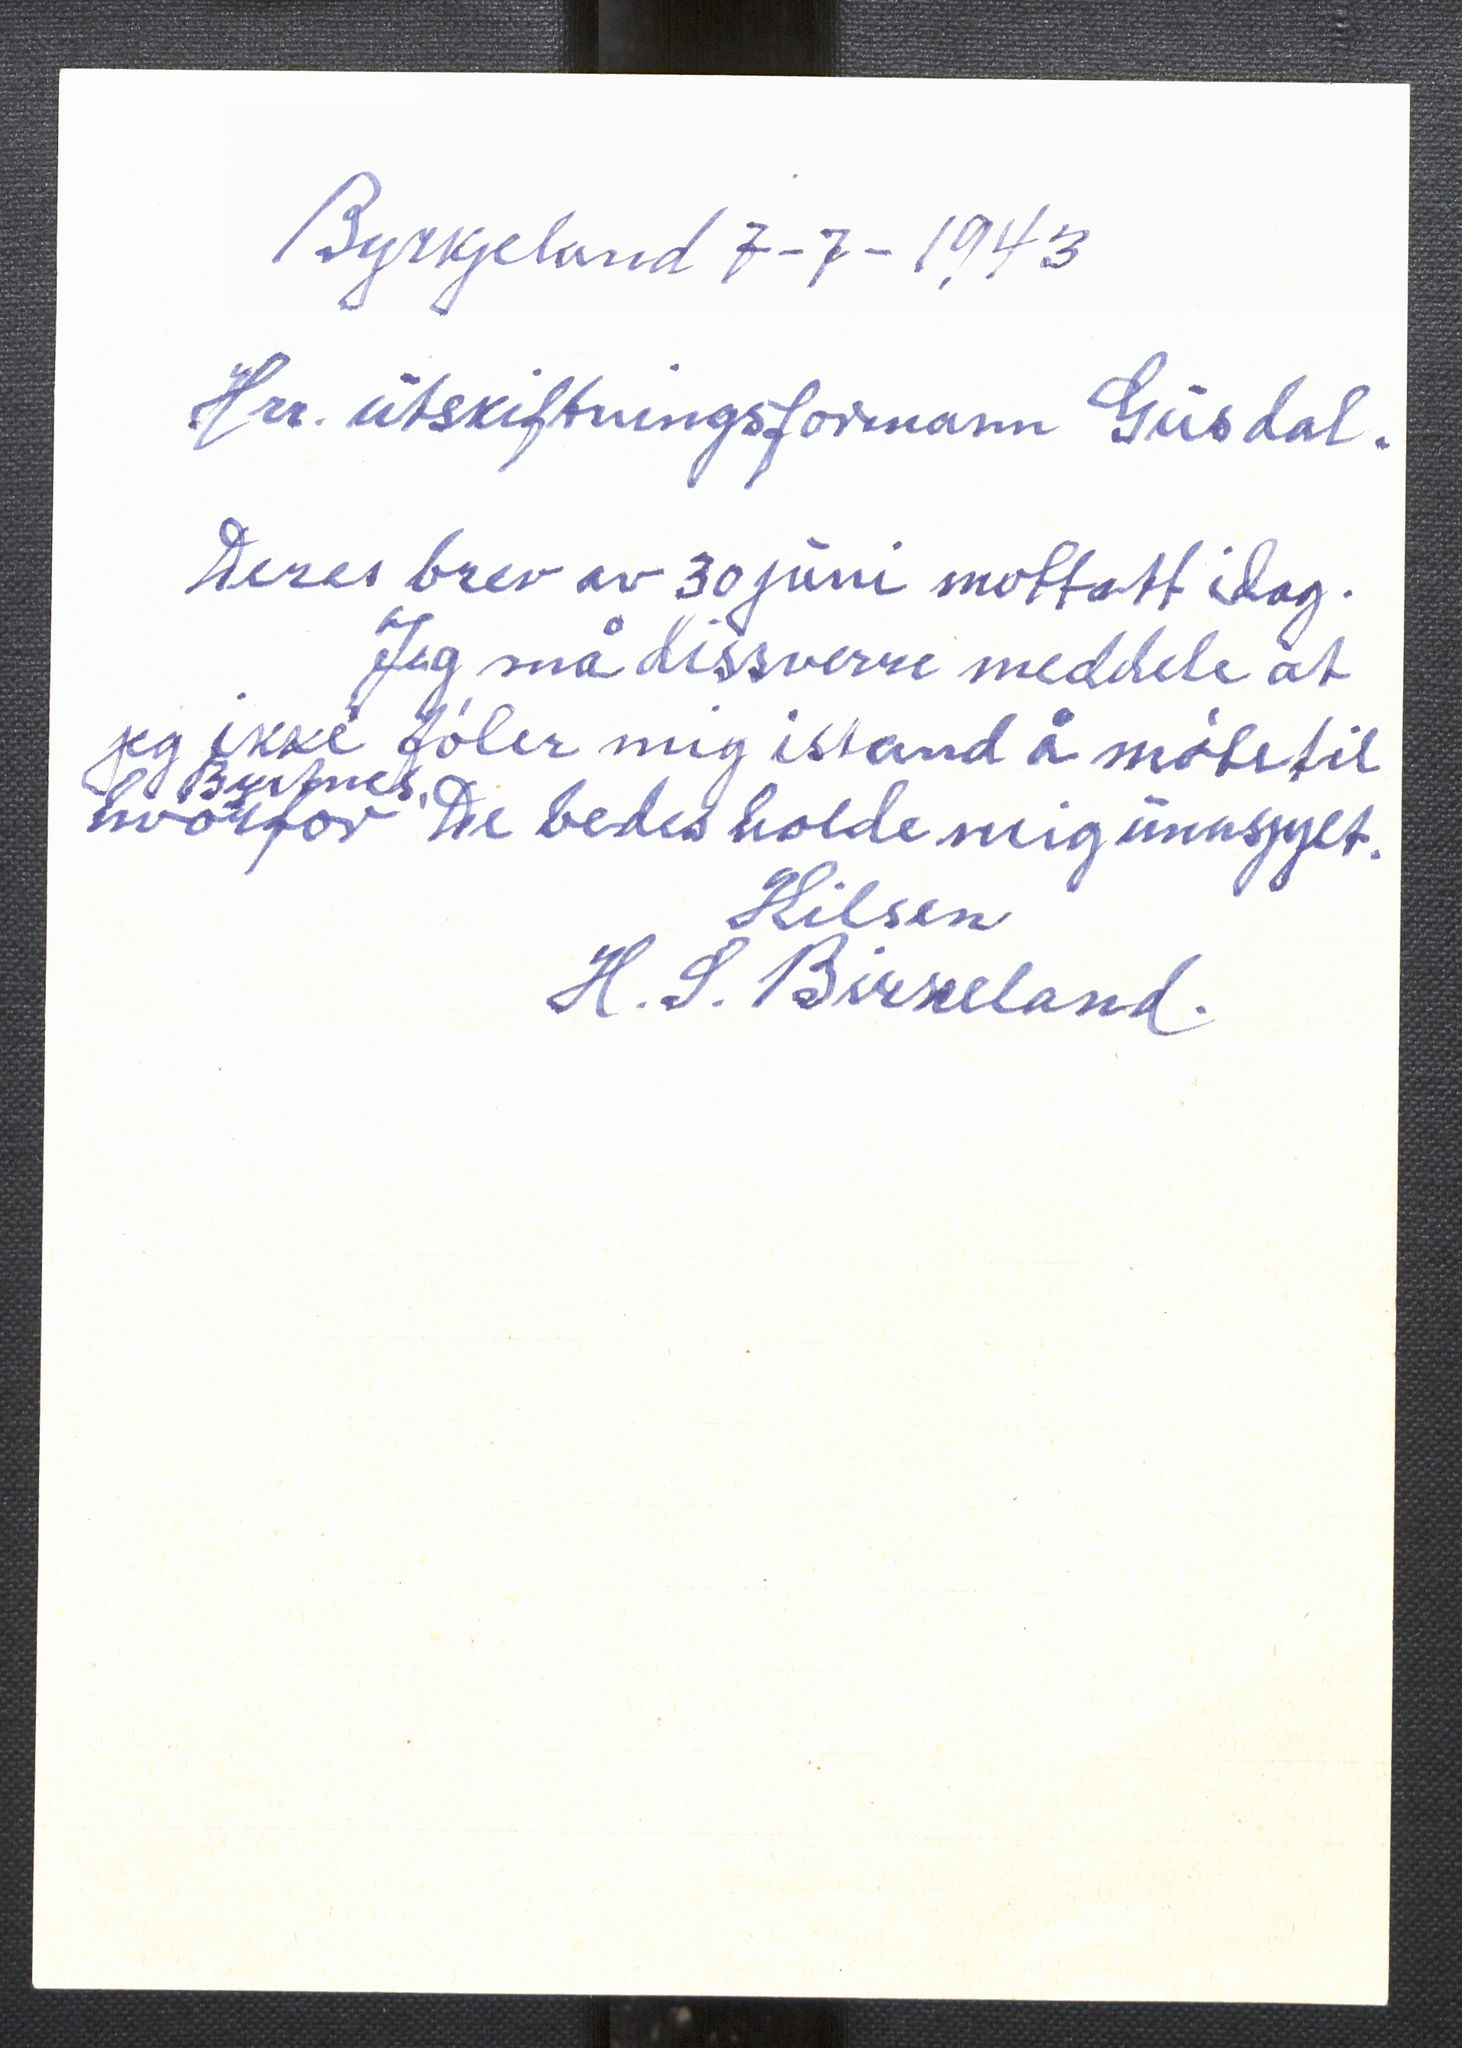 Byrkjeland 7-7-1943
Hrr. utskiftningsformann Gusdal.
Deres brev av 30 juni mottatt idag.
Jeg må dissverre meddele at
jeg ikke føler mig istand å møte til
Byrknes,
hvorfor De bedes holde mig unnsjylt.
Hilsen
H. S. Birkeland.